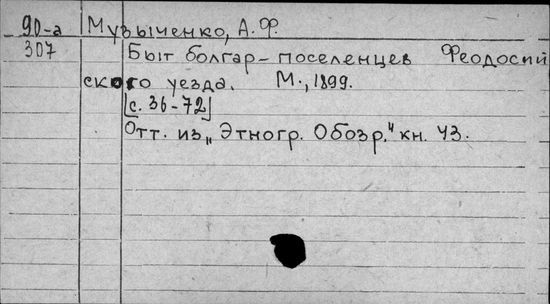 90-а Музыченко, А. Ф.
307 Быт болгар-поселенцев Феодосий
ского уезда. М., 1899.
[с. 36-72]
Отт. из „Этногр. Обозр." кн. 43.